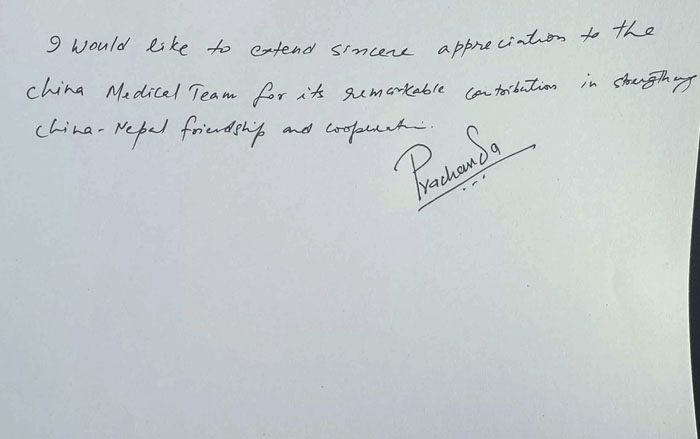 I would like to extend sincere appreciation to the
China Medical Team for its remarkable contribution in strengthing
China-Nepal friendship and cooperation.
Prachanda